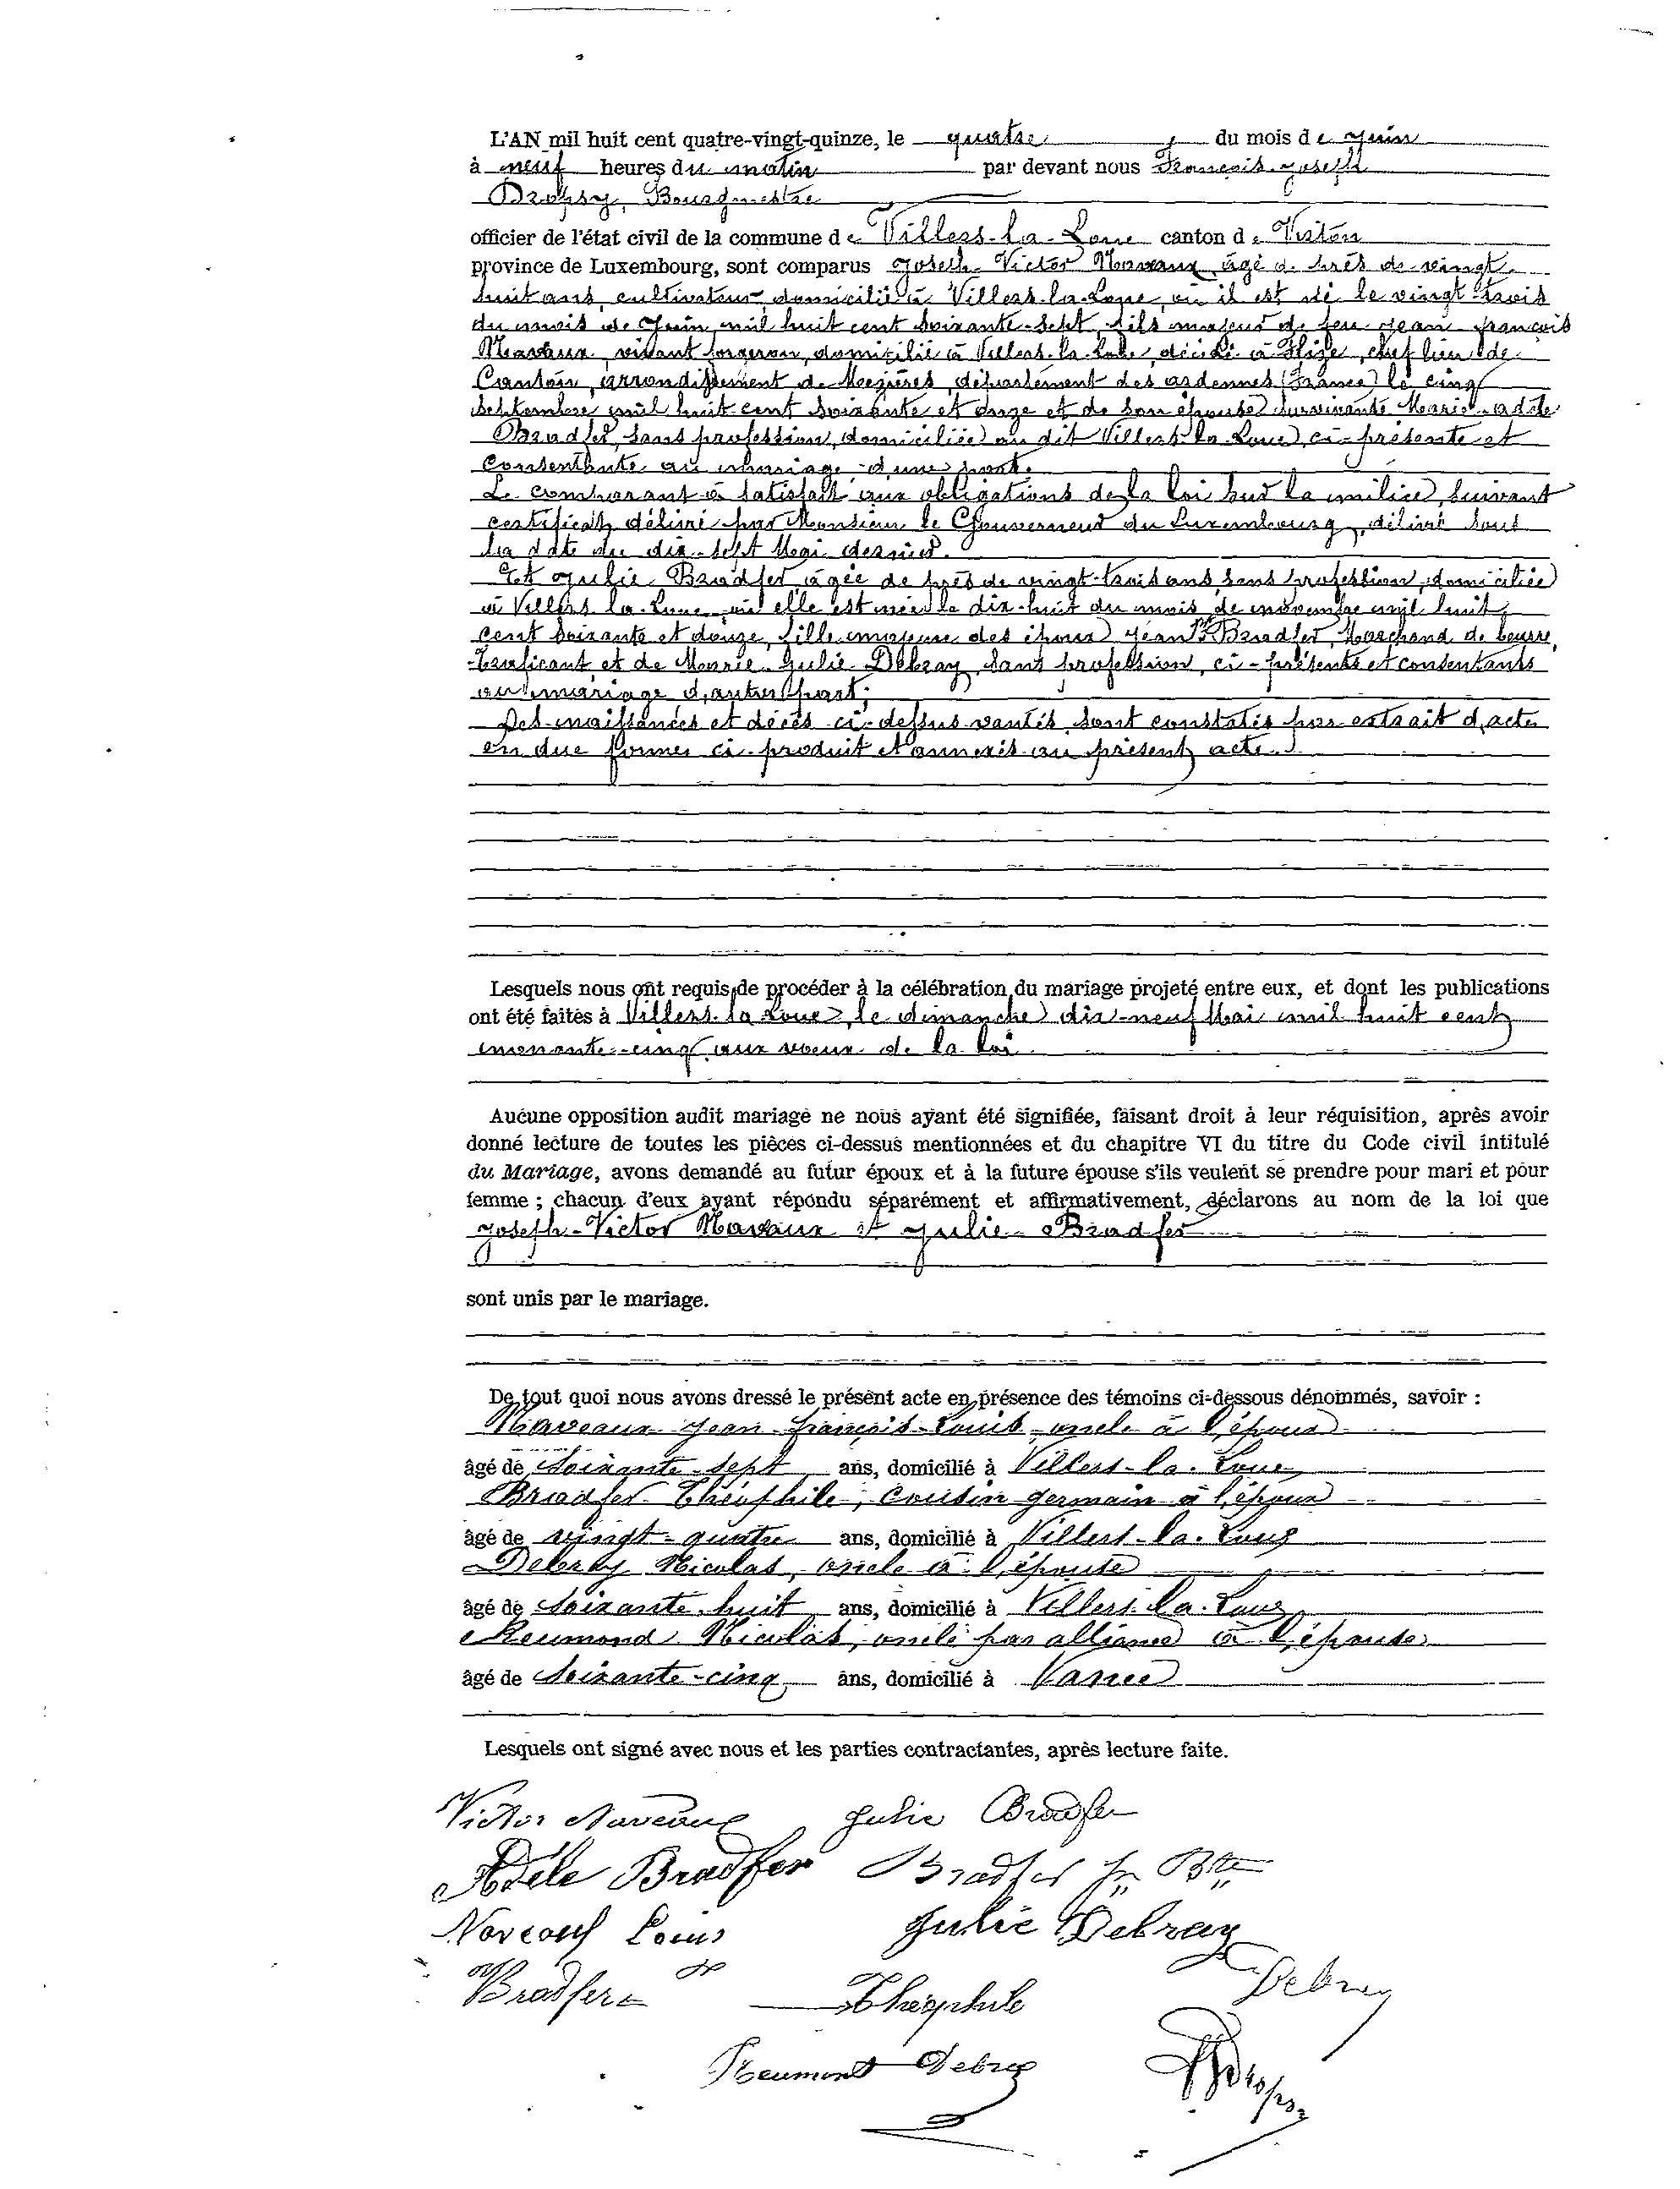 L'AN mil huit cent quatre-vingt-quinze, le quatre du mois de Juin
à neuf heures du matin par devant nous François-Joseph
Dropsy, Bourgmestre
officier de l'état civil de la commune de Villers-la-Loue canton de Virton
province de Luxembourg, sont comparus Joseph-Victor Naveaux, âgé de près de vingt
huit ans, cultivateur, domicilié à Villers-la-Loue, où il est né le vingt-trois
du mois de Juin mil huit cent soixante-sept, fils majeur de feu Jean-françois
Naveaux, vivant forgeron, domicilié à Villers-la-Loue, décédé à Flize, chef lieu de
Canton, arrondissement de Mezières, département des ardennes (France) le cinq
septembre mil huit cent soixante et onze et de son épouse survivante Marie-adèle
Bradfer, sans profession, domiciliée au dit Villers-la-Loue, ci-présente et
consentante au mariage d'une part.
Le comparant a satisfait aux obligations de la loi sur la milice, suivant
certificat délivré par Monsieur le Gouverneur du Luxembourg, délivré sous
la date du dix-sept Mai dernier.
Et Julie Bradfer, âgée de près de vingt-trois ans, sans profession, domiciliée
à Villers-la-Loue, où elle est née le dix-huit du mois de novembre mil huit
cent soixante et douze, fille majeure des époux Jean Bte Bradfer, Marchand de beurre,
traficant, et de Marie-Julie Debray, sans profession, ci-présents et consentants
au mariage d'autre part;
Les naissances et décès ci-dessus vantés sont constatés par extrait d'acte
en due forme ci-produit et annexés au présent acte.
Lesquels nous ont requis de procéder à la célébration du mariage projeté entre eux, et dont les publications
ont été faites à Villers-la-Loue, le dimanche dix-neuf Mai mil huit cent
nonante-cinq aux voeux de la loi.
Aucune opposition audit mariage ne nous ayant été signifiée, faisant droit à leur réquisition, après avoir
donné lecture de toutes les pièces ci-dessus mentionnées et du chapitre VI du titre du Code civil intitulé
du Mariage, avons demandé au futur époux et à la future épouse s'ils veulent se prendre pour mari et pour
femme ; chacun d'eux ayant répondu séparément et affirmativement, déclarons au nom de la loi que
Joseph-Victor Naveaux et Julie Bradfer
sont unis par le mariage.
De tout quoi nous avons dressé le présent acte en présence des témoins ci-dessous dénommés, savoir :
Naveaux Jean-françois-Louis, oncle à l'époux
âgé de Soixante-sept ans, domicilié à Villers-la-Loue
Bradfer Théophile, cousin germain à l'époux
âgé de vingt-quatre ans, domicilié à Villers-la-Loue
Debray Nicolas, oncle à l'épouse
âgé de Soixante-huit ans, domicilié à Villers-la-Loue
Reumond Nicolas, oncle par alliance à l'épouse
âgé de Soixante-cinq ans, domicilié à Vance
Lesquels ont signé avec nous et les parties contractantes, après lecture faite.
Victor Naveaux Julie Bradfer
Adèle Bradfer Bradfer Jn Bte
Naveaux Louis Julie Debray
Bradfer Théophile Debray
Reumont Debray Dropsy